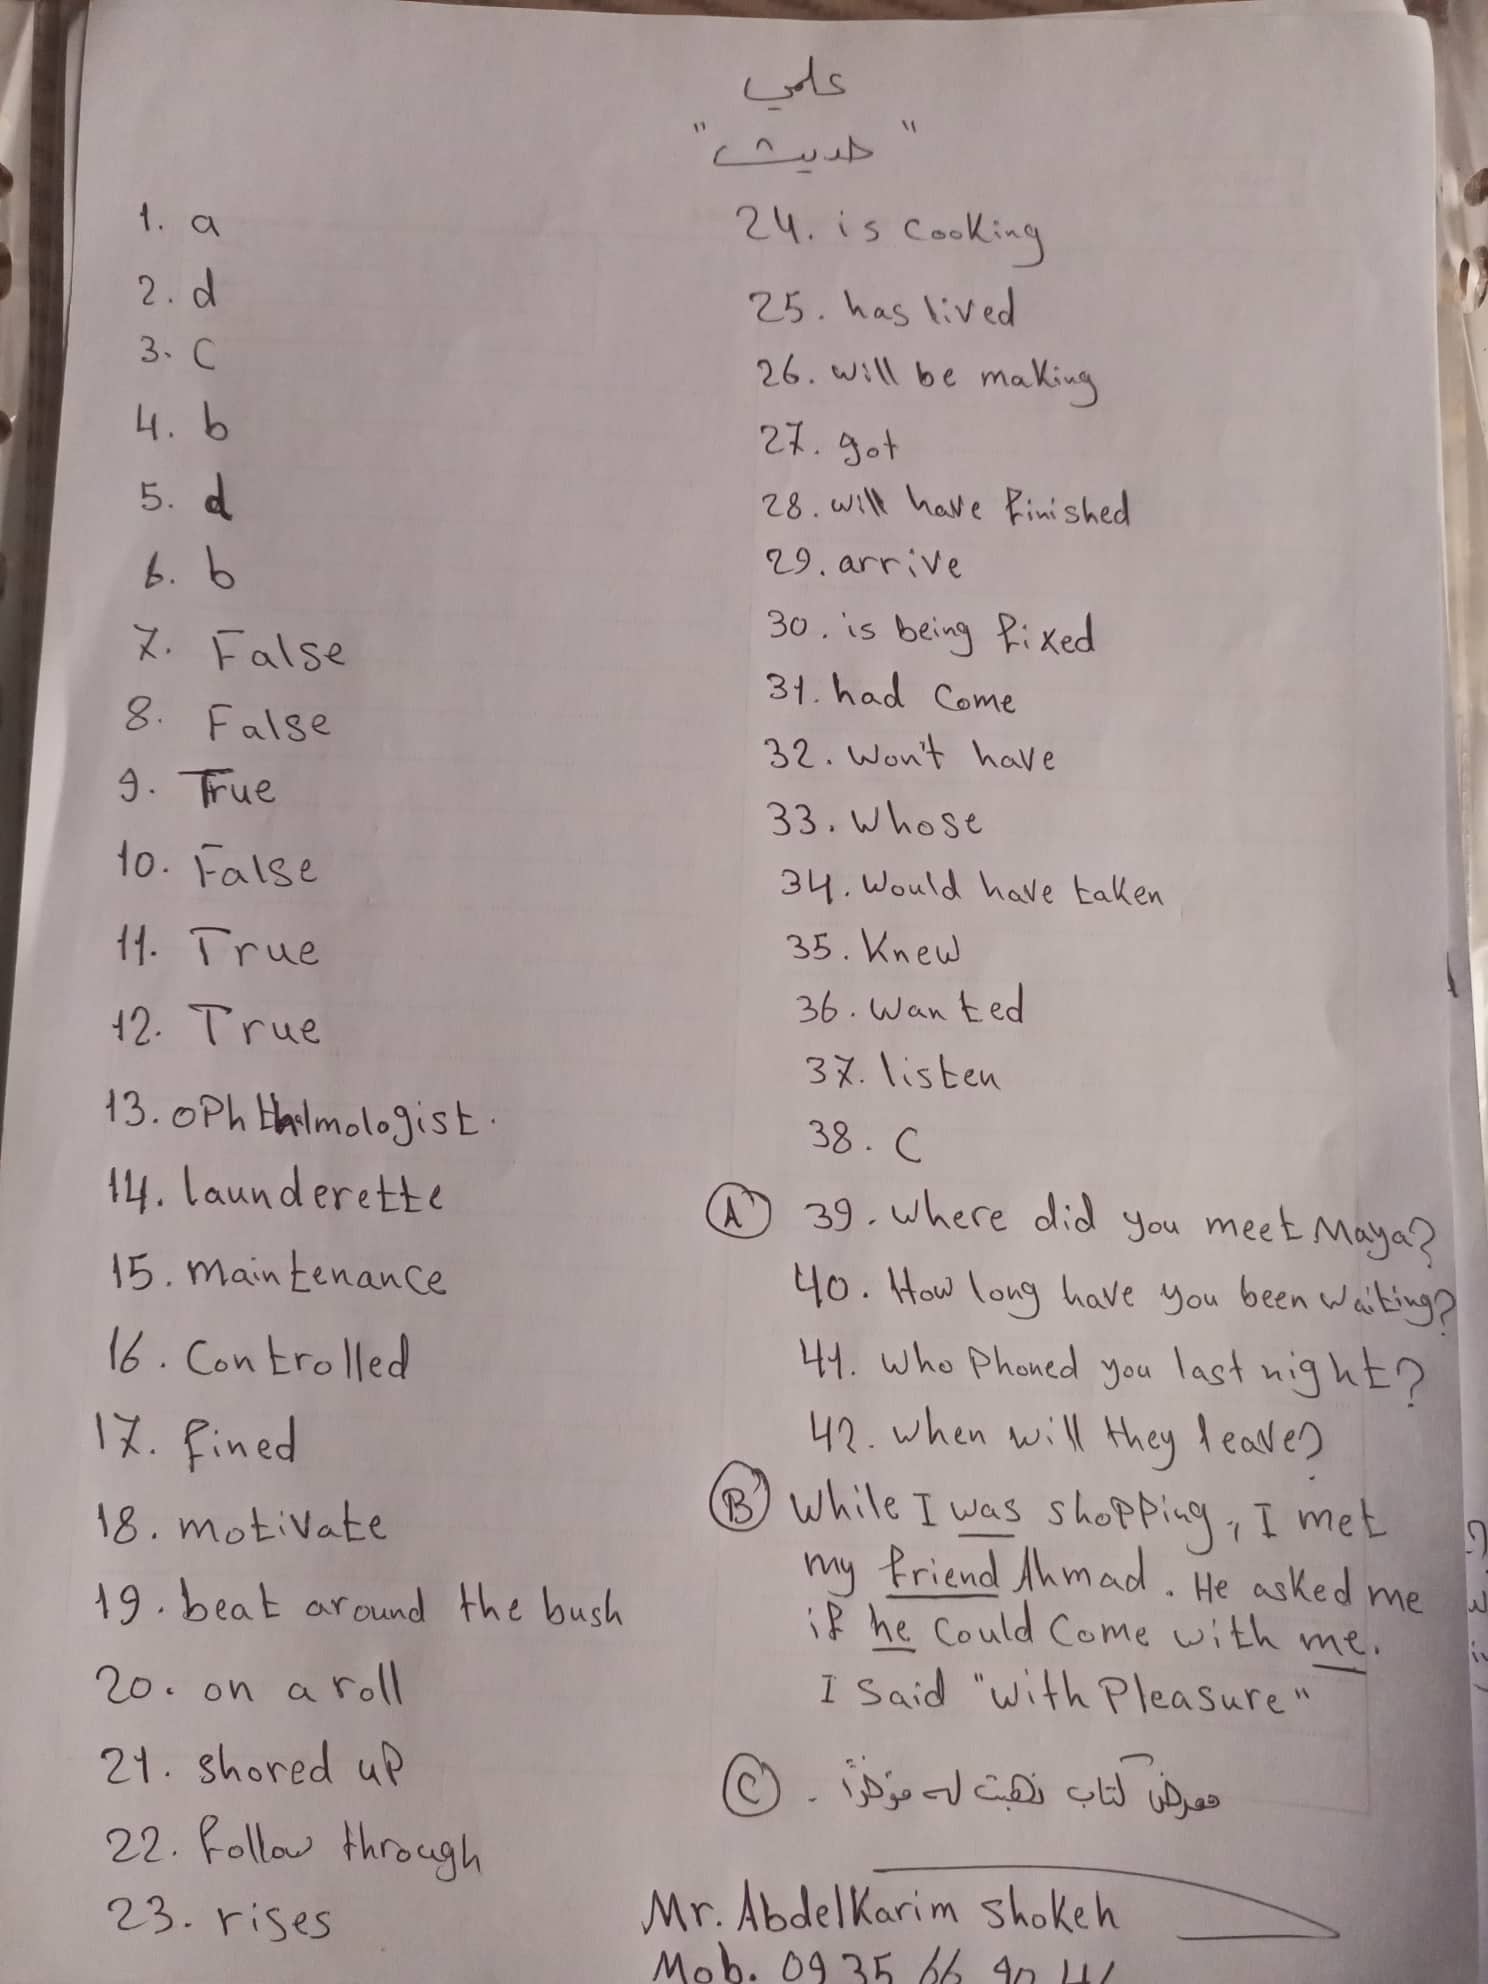 علمي
"حديث"
1. a
2. d
3. C
4. b
5. d
6. b
7. False
8. False
9. True
10. False
11. True
12. True
13. oPhthalmologist.
14. launderette
15. maintenance
16. Controlled
17. fined
18. motivate
19. beat around the bush
20. on a roll
21. shored up
22. follow through
23. rises
24. is cooking
25. has lived
26. will be making
27. got
28. will have finished
29. arrive
30. is being fixed
31. had Come
32. Won't have
33. Whose
34. Would have taken
35. Knew
36. Wanted
37. listen
38. C
A 39. Where did you meet Maya?
40. How long have you been waiting?
41. Who Phoned you last night?
42. When will they leave?
B While I was shopping, I met
my friend Ahmad. He asked me
if he Could Come with me.
I Said "With Pleasure"
C . معرض كتاب ذهبت له مؤخراً
Mr. AbdelKarim Shokeh
Mob. 0935 66